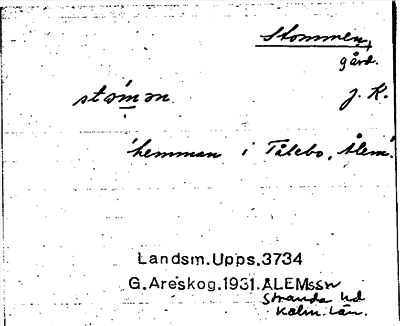 Stommen,
gård.
stom̄ən. J. K.
'hemman i Tålebo, Ålem'.
Landsm.Upps.3734
G.Areskog.1931.ÅLEMssn
Stranda hd
Kalm. län.